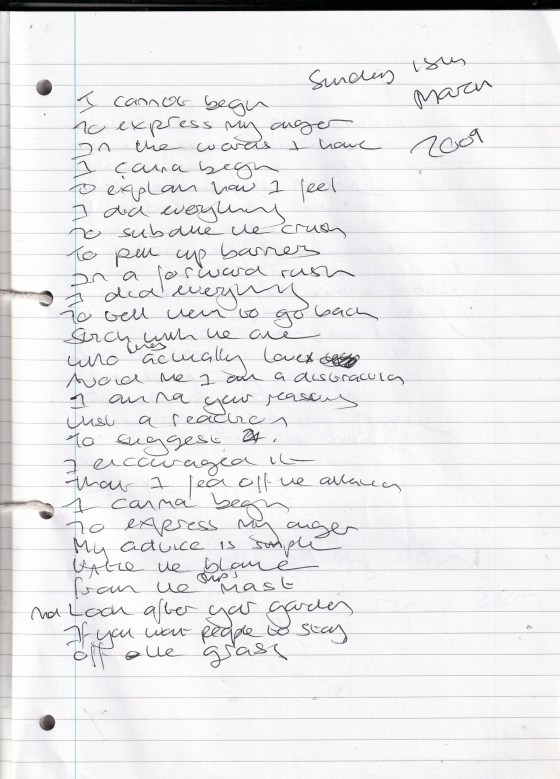 Sunday 15th
March
2009
I cannot begin
To express my anger
In the words I have
I canna begin
To explain how I feel
I did everything
To subdue the crush
To put up barriers
In a forward rush
I did everything
To tell them to go back
Stick with the one
who lives actually loves
Avoid me I am a distraction
I am na your reasons
Just a reaction
To suggest it.
I encouraged it
That I fed off the attention
I canna begin
To express my anger
My advice is simple
the blame
from the ships mast
And Look after your garden
If you want people to stay
off the grass